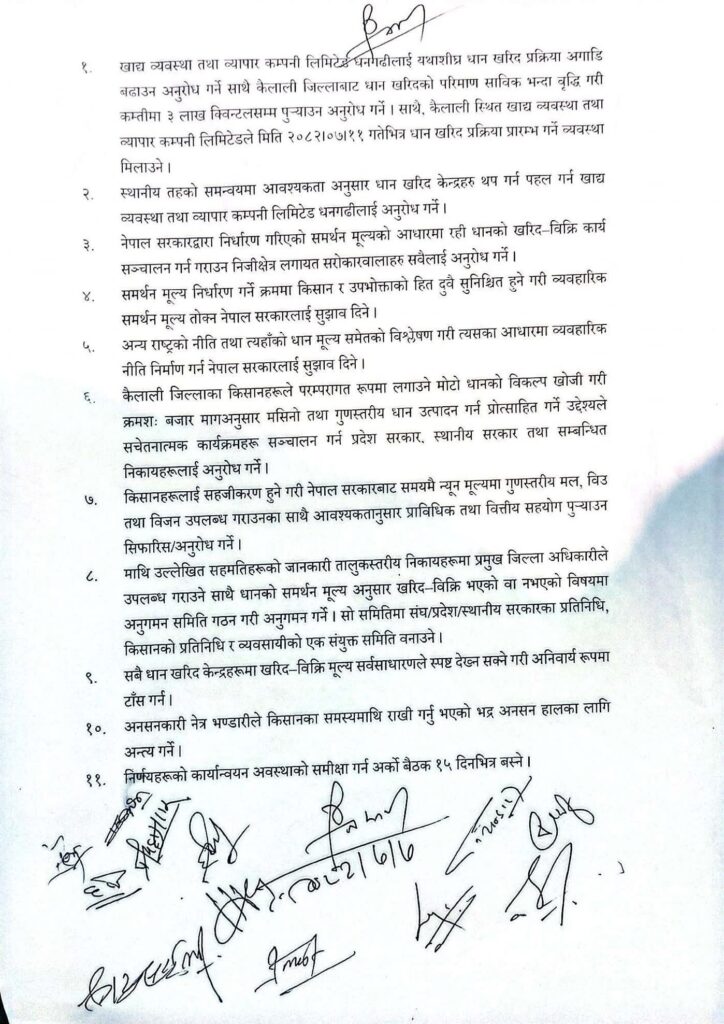 १. खाद्य व्यवस्था तथा व्यापार कम्पनी लिमिटेड धनगढीलाई यथाशीघ्र धान खरिद प्रक्रिया अगाडि
बढाउन अनुरोध गर्ने साथै कैलाली जिल्लाबाट धान खरिदको परिमाण साविक भन्दा वृद्धि गरी
कम्तीमा ३ लाख क्विन्टलसम्म पुऱ्याउन अनुरोध गर्ने । साथै, कैलाली स्थित खाद्य व्यवस्था तथा
व्यापार कम्पनी लिमिटेडले मिति २०८२।०७।११ गतेभित्र धान खरिद प्रक्रिया प्रारम्भ गर्ने व्यवस्था
मिलाउने ।
२. स्थानीय तहको समन्वयमा आवश्यकता अनुसार धान खरिद केन्द्रहरु थप गर्न पहल गर्न खाद्य
व्यवस्था तथा व्यापार कम्पनी लिमिटेड धनगढीलाई अनुरोध गर्ने ।
३. नेपाल सरकारद्वारा निर्धारण गरिएको समर्थन मूल्यको आधारमा रही धानको खरिद–विक्रि कार्य
सञ्चालन गर्न गराउन निजीक्षेत्र लगायत सरोकारवालाहरु सवैलाई अनुरोध गर्ने ।
४. समर्थन मूल्य निर्धारण गर्ने क्रममा किसान र उपभोक्ताको हित दुवै सुनिश्चित हुने गरी व्यवहारिक
समर्थन मूल्य तोक्न नेपाल सरकारलाई सुझाव दिने ।
५. अन्य राष्ट्रको नीति तथा त्यहाँको धान मूल्य समेतको विश्लेषण गरी त्यसका आधारमा व्यवहारिक
नीति निर्माण गर्न नेपाल सरकारलाई सुझाव दिने ।
६. कैलाली जिल्लाका किसानहरूले परम्परागत रूपमा लगाउने मोटो धानको विकल्प खोजी गरी
क्रमशः बजार मागअनुसार मसिनो तथा गुणस्तरीय धान उत्पादन गर्न प्रोत्साहित गर्ने उद्देश्यले
सचेतनात्मक कार्यक्रमहरू सञ्चालन गर्न प्रदेश सरकार, स्थानीय सरकार तथा सम्बन्धित
निकायहरूलाई अनुरोध गर्ने ।
७. किसानहरूलाई सहजीकरण हुने गरी नेपाल सरकारबाट समयमै न्यून मूल्यमा गुणस्तरीय मल, विउ
तथा विजन उपलब्ध गराउनका साथै आवश्यकतानुसार प्राविधिक तथा वित्तीय सहयोग पुऱ्याउन
सिफारिस/अनुरोध गर्ने ।
८. माथि उल्लेखित सहमतिहरूको जानकारी तालुकस्तरीय निकायहरूमा प्रमुख जिल्ला अधिकारीले
उपलब्ध गराउने साथै धानको समर्थन मूल्य अनुसार खरिद–विक्रि भएको वा नभएको विषयमा
अनुगमन समिति गठन गरी अनुगमन गर्ने । सो समितिमा संघ/प्रदेश/स्थानीय सरकारका प्रतिनिधि,
किसानको प्रतिनिधि र व्यवसायीको एक संयुक्त समिति वनाउने ।
९. सबै धान खरिद केन्द्रहरूमा खरिद–विक्रि मूल्य सर्वसाधारणले स्पष्ट देख्न सक्ने गरी अनिवार्य रूपमा
टाँस गर्न ।
१०. अनसनकारी नेत्र भण्डारीले किसानका समस्यामाथि राखी गर्नु भएको भद्र अनसन हालका लागि
अन्त्य गर्ने ।
११. निर्णयहरूको कार्यान्वयन अवस्थाको समीक्षा गर्न अर्को बैठक १५ दिनभित्र बस्ने ।